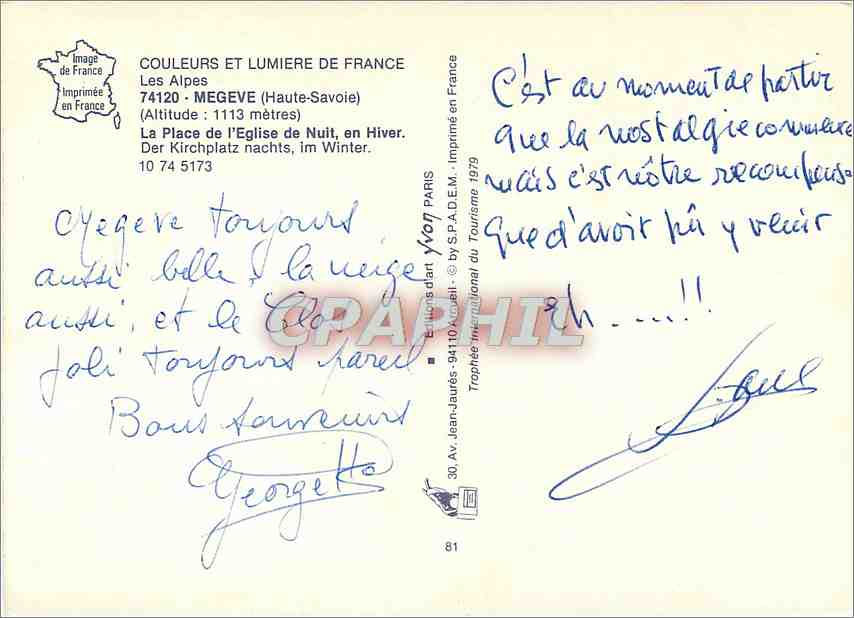 Image
de France
Imprimée
en France
COULEURS ET LUMIERE DE FRANCE
Les Alpes
74120 - MEGEVE (Haute-Savoie)
(Altitude : 1113 mètres)
La Place de l'Eglise de Nuit, en Hiver.
Der Kirchplatz nachts, im Winter.
10 74 5173
Megeve toujours
aussi belle, la neige
aussi, et le Clos
Joli toujours pareil
Bons souvenirs
Georgette
Editions d'art yvon PARIS
30, Av. Jean-Jaurès - 94110 Arcueil - © by S.P.A.D.E.M. - Imprimé en France
Trophée International du Tourisme 1979
81
C'est au moment de partir
que la nostalgie commence
mais c'est nôtre récompense
que d'avoir pû y venir
eh.....!!
CPAPHIL